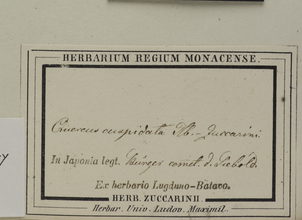 HERBARIUM REGIUM MONACENSE.
Quercus cuspidata Th. Zuccarini
In Japonia legt. Bürger comet. d. Siebold.
Ex herbario Lugduno-Batavo.
HERB. ZUCCARINII
Herbar. Univ. Ludov. Maximil.